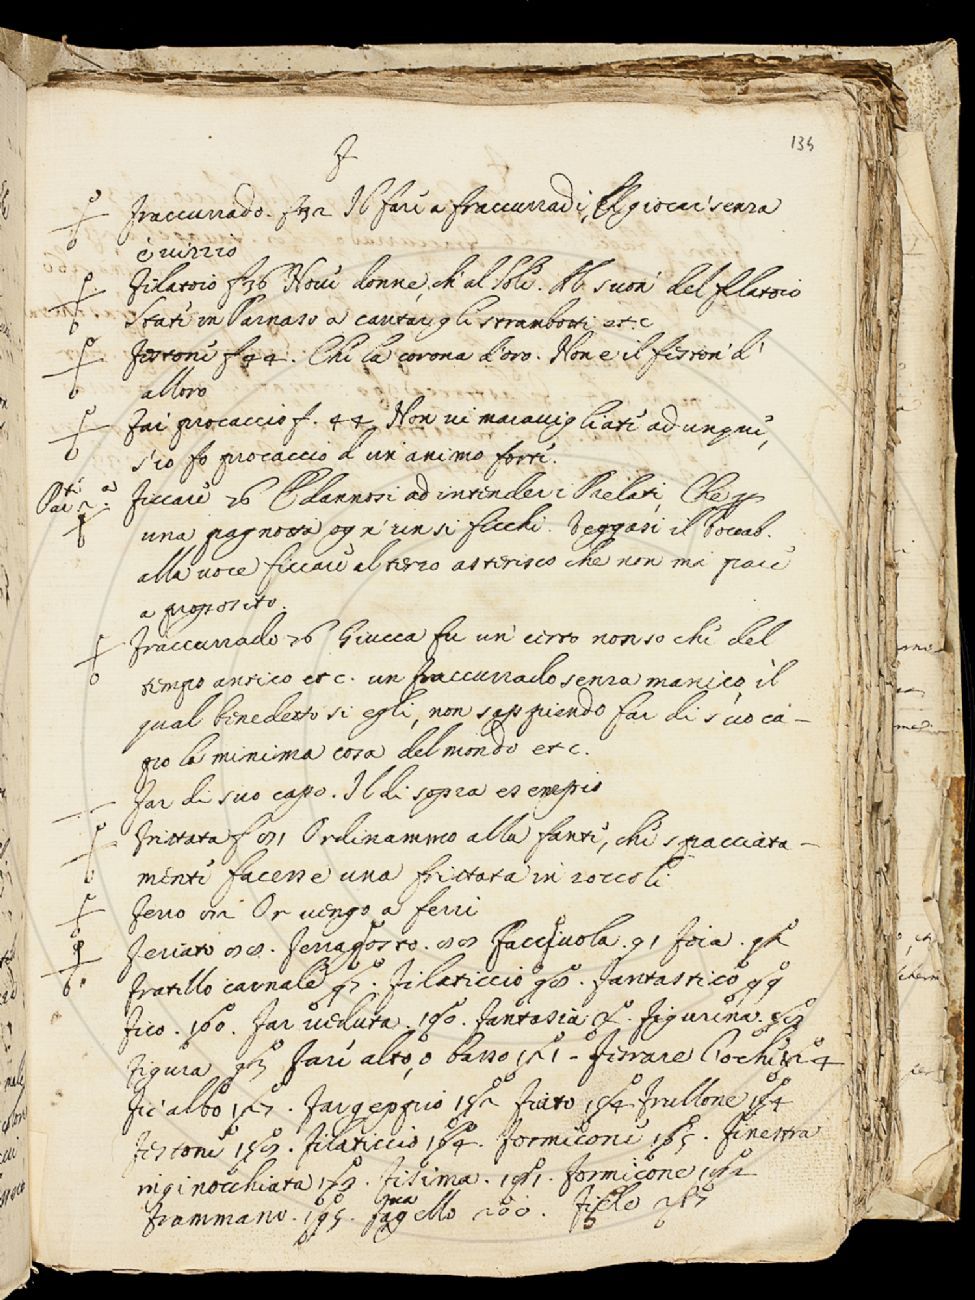 135
F
Fraccurrado. f 32 Il fare a fraccurradi, El giocar senza
è vizzio
Filatoio f 36 Nove donne, ch' al Sole. Al suon' del filatoio
State in Parnaso a cantar gli strambotti etc
Festone f 44. Chi la corona d'oro. Non è il feston' d'
alloro
Far procaccio f. 44 Non vi maravigliate adunque,
s'io fo procaccio d' un animo forte.
Ficcare 26 E dannosi ad intender i Prelati, Che
una pagnotta ogn' un si ficchi. Veggasi il Vocab.
alla voce ficcare al terzo asterisco che non mi pare
a proposito.
Fraccurrado 26 Giucca fu un' certo non so che del
tempo antico etc. un fraccurrado senza manico il
qual benedetto si egli, non sappiendo far di suo ca-
po la minima cosa del mondo etc.
Far di suo capo. Il di sopra es esempio
Frittata f Ordinammo alla fante, che spacciata-
mente facesse una frittata in zoccoli
Ferro Or vengo a ferri
Ferrato . Ferragosto . Faccivola . 91 Foia .
Fratello carnale . Filaticcio . Fantastico 99
Fico . 100 . Far veduta . . Fantasia . Figurina .
Figura Fare alto, o basso 121 - Ferrare l'oche 124
Fic'albo 127 . Far geppo 152 Fiato 154 Frullone 154
Festone . Filaticcio 164 . Formicone 165 . Finestra
inginocchiata . Fisima . 181 . Formicone 182
Frammano . 195 . Fagello 200 . Fiele